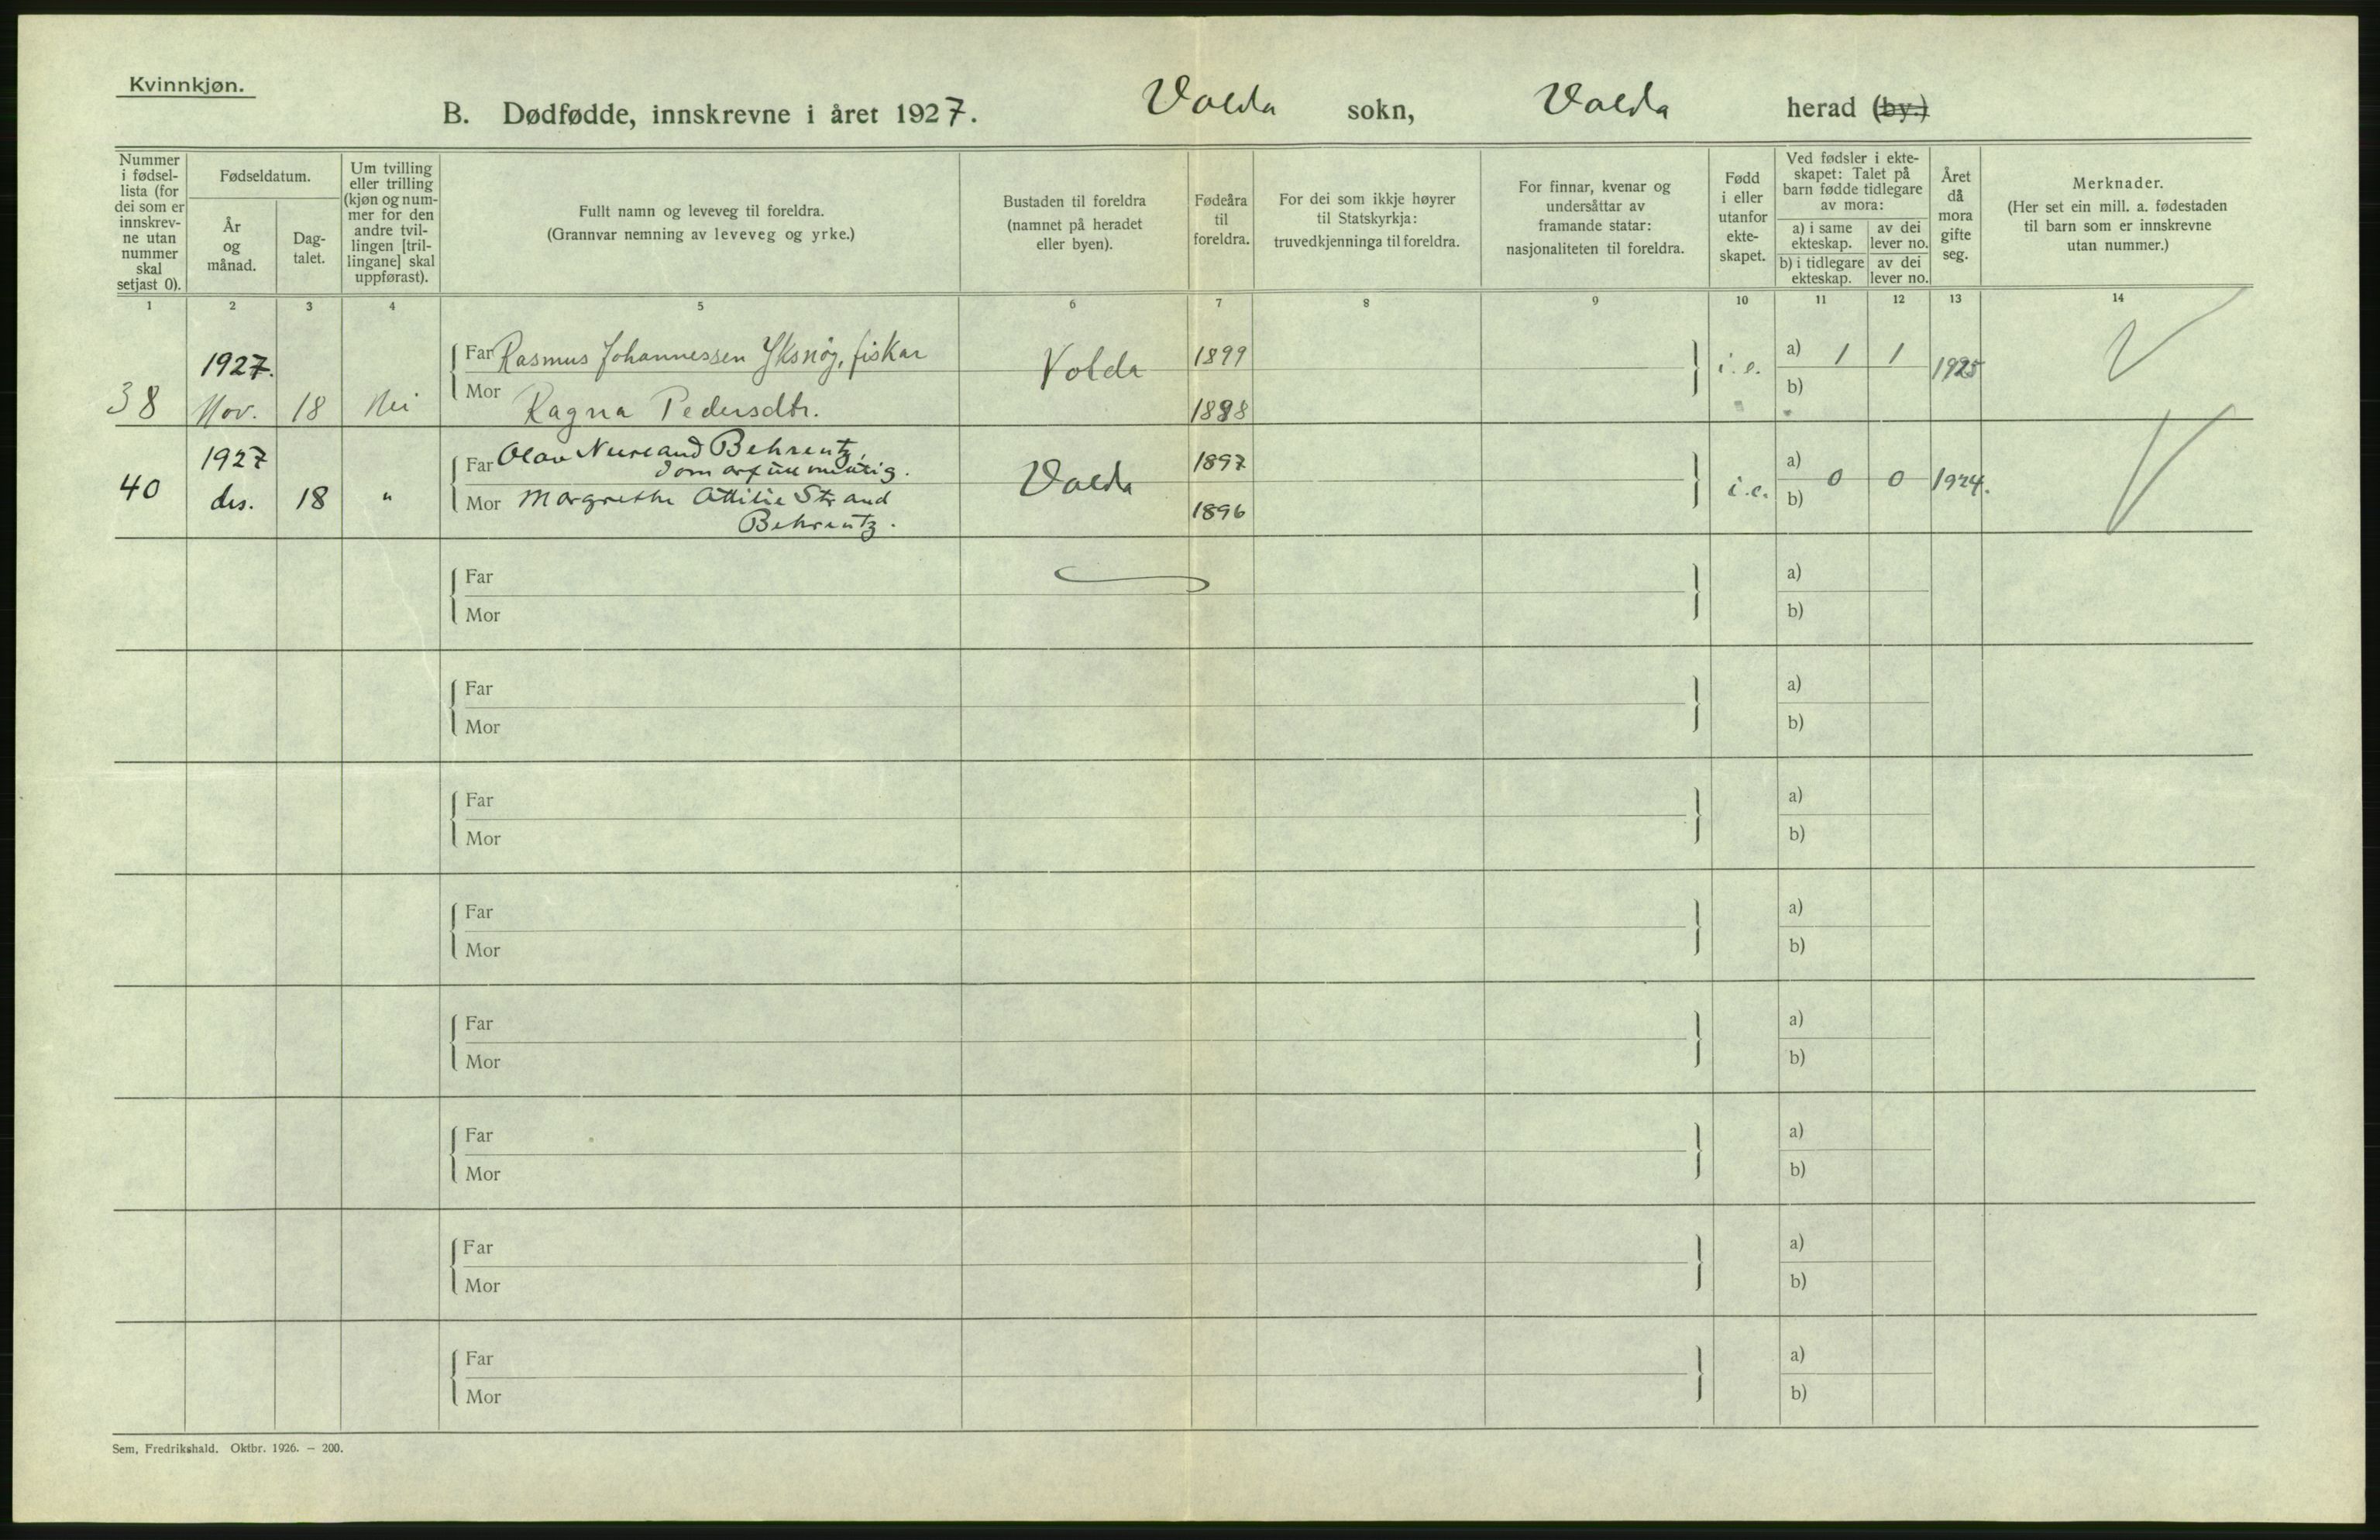 Kvinnkjøn.
B. Dødfødde, innskrevne i året 1927. Volda sokn, Volda herad (by.)
Nummer i fødsel-lista (for dei som er innskrev-ne utan nummer skal setjast 0).
Fødseldatum.
År og månad.
Dag-talet.
Um tvilling eller trilling (kjøn og num-mer for den andre tvil-lingen [tril-lingane] skal uppførast).
Fullt namn og leveveg til foreldra.
(Grannvar nemning av leveveg og yrke.)
Bustaden til foreldra
(namnet på heradet
eller byen).
Fødeåra
til
foreldra.
For dei som ikkje høyrer
til Statskyrkja:
truvedkjenninga til foreldra.
For finnar, kvenar og
undersåttar av
framande statar:
nasjonaliteten til foreldra.
Fødd
i eller
utanfor
ekte-
skapet.
Ved fødsler i ekte-
skapet: Talet på
barn fødde tidlegare
av mora:
a) i same ekteskap.
av dei lever no.
b) i tidlegare ekteskap.
av dei lever no.
Året
då
mora
gifte
seg.
Merknader.
(Her set ein mill. a. fødestaden
til barn som er innskrevne
utan nummer.)
1 2 3 4 5 6 7 8 9 10 11 12 13 14
1927. Far Rasmus Johannessen Yksnøy, fiskar Volda 1899 i. e. a) 1 1 1925
38 Nov. 18 Nei Mor Ragna Pedersdtr. 1898 b)
1927 Far Olav Behrentz, 1897 a)
40 des. 18 " Mor Margrethe Ottilie Strand Volda i.e. b) 0 0 1924.
Behrentz. 1896
Far a)
Mor b)
Far a)
Mor b)
Far a)
Mor b)
Far a)
Mor b)
Far a)
Mor b)
Far a)
Mor b)
Far a)
Mor b)
Far a)
Mor b)
Sem, Fredrikshald. Oktbr. 1926. — 200.